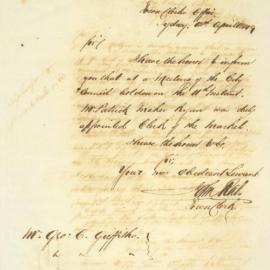 Town Clerks Office
Sydney, April
Sir
I have the honor to inform
you that at a Meeting of the City
Council holden on the 11th Instant
Mr Patrick Maher Ryan was duly
appointed Clerk of the Market.
I have the honor to be
Sir,
Your Obedient Servant
Town Clerk
Mr. Geo. C. Griffiths